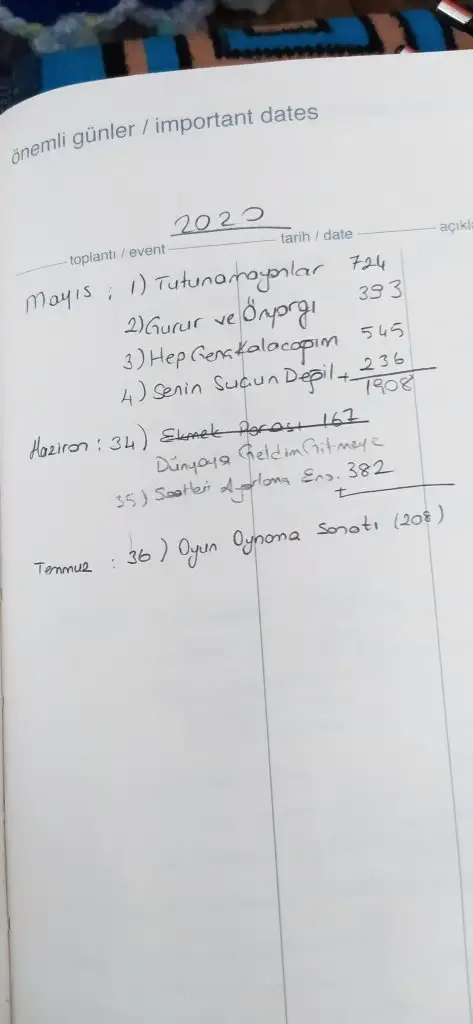 önemli günler / important dates
2020
toplantı / event tarih / date açıkla
Mayıs : 1) Tutunamayanlar 724
2) Gurur ve Önyargı 393
3) Hep Genç Kalacağım 545
4) Senin Suçun Değil + 236
1908
Haziran : 34) Ekmek Parası 167
Dünyaya Geldim Gitmeye
35) Saatleri Ayarlama Ens. 382
+
Temmuz : 36) Oyun Oynama Sanatı (208)